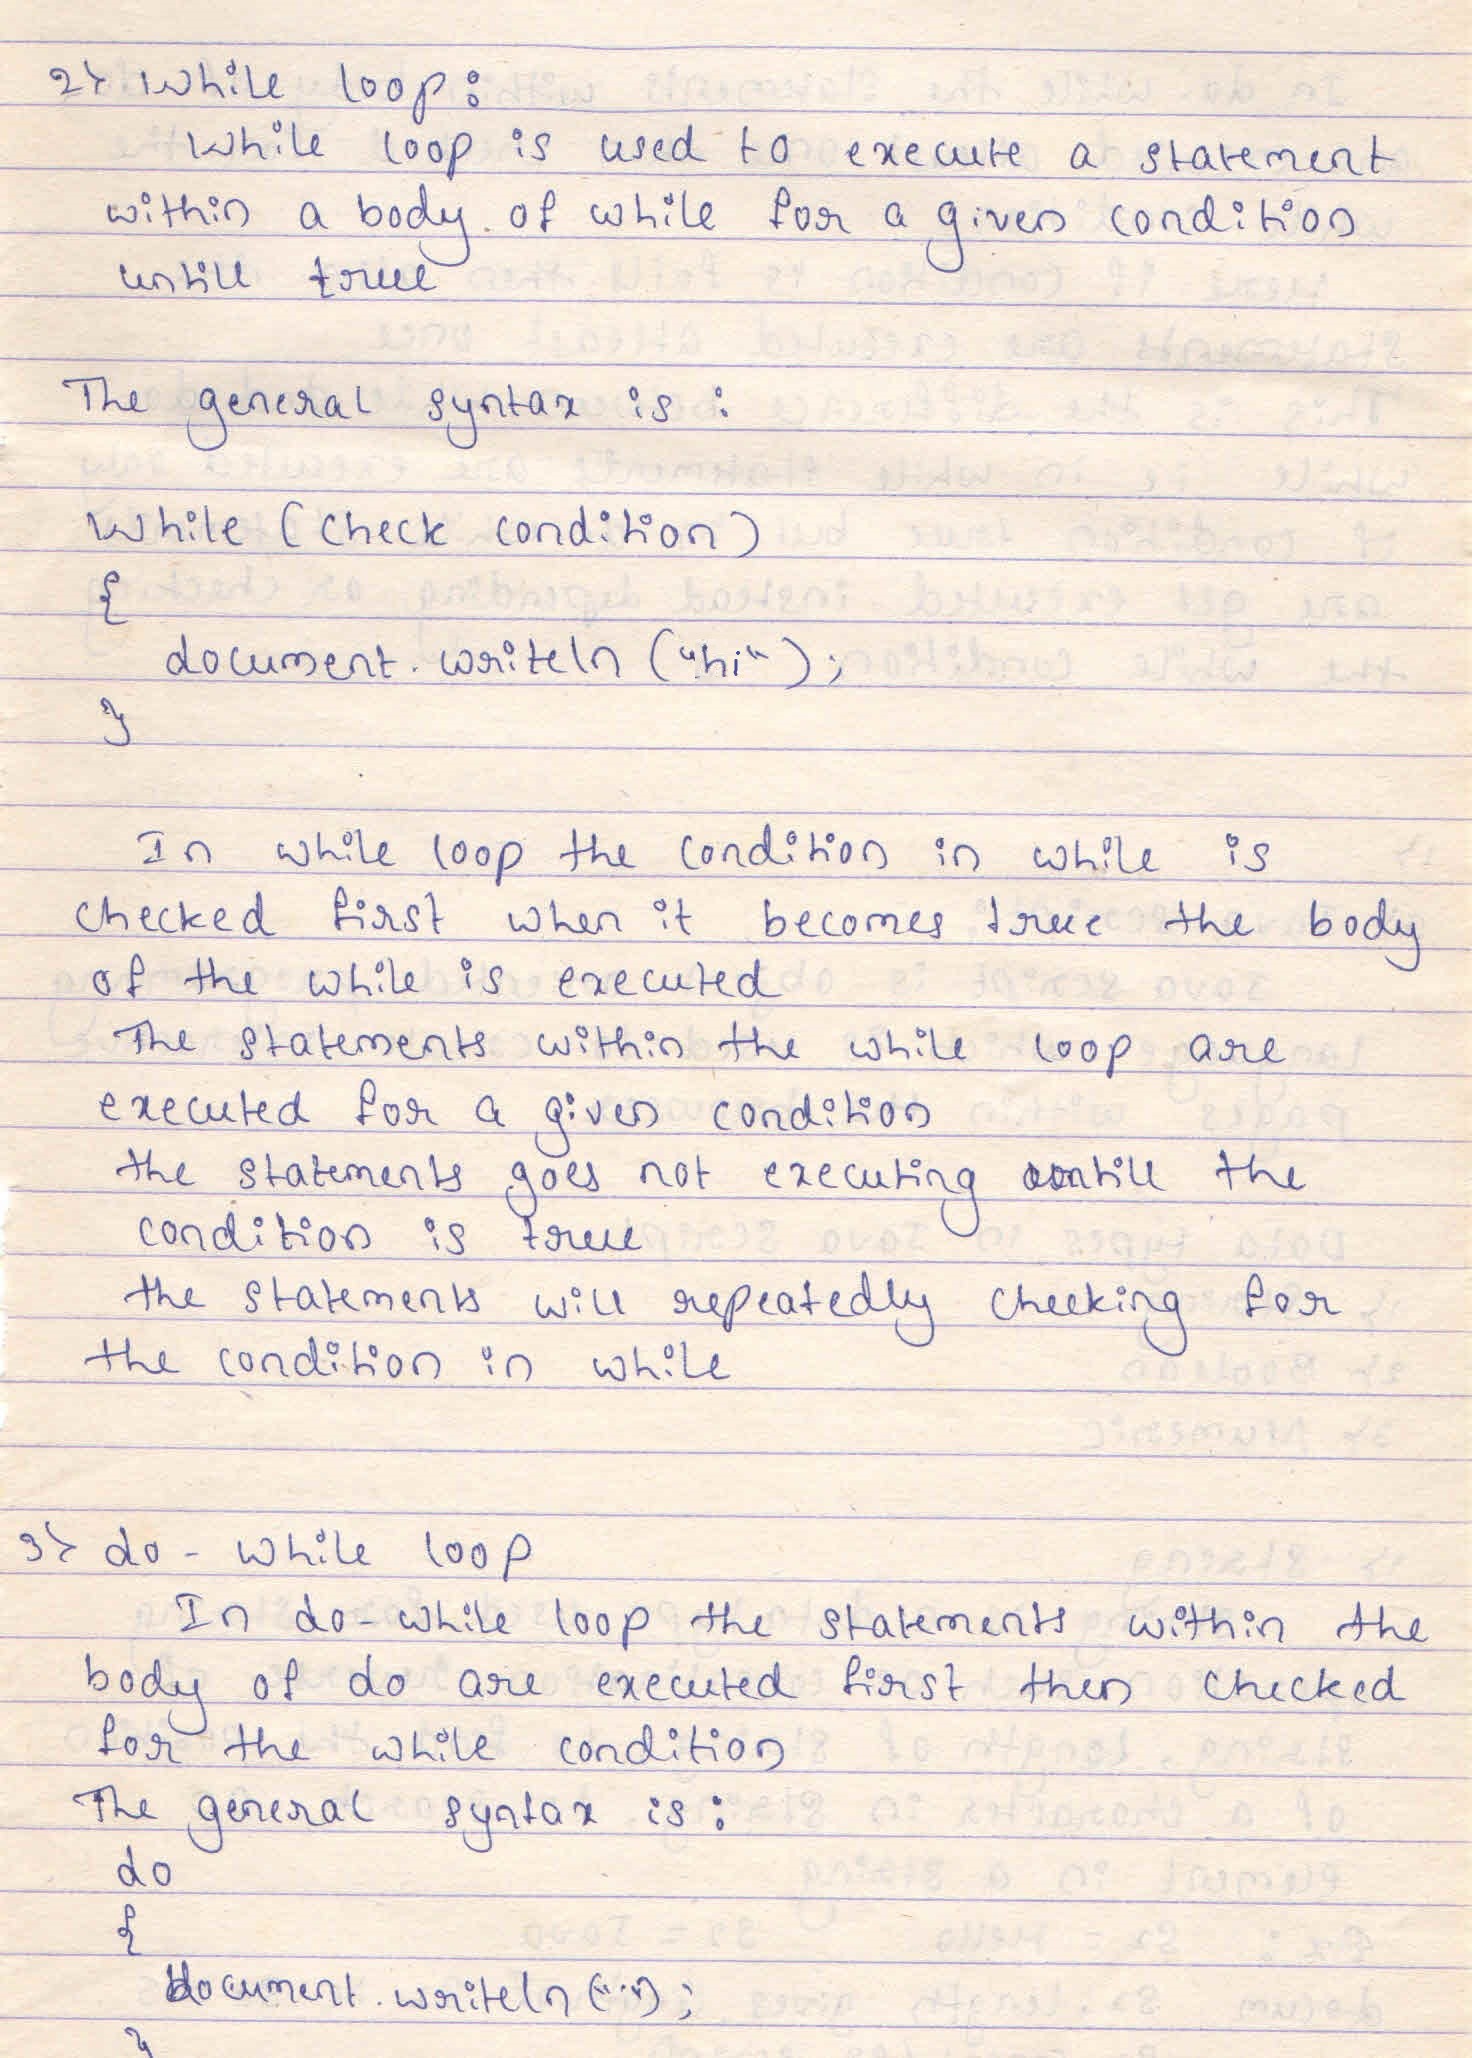 2> While loop:
While loop is used to execute a statement
within a body of while for a given condition
untill true
The general syntax is:
While (check condition)
{
document.writeln ("hi");
}
In while loop the condition in while is
checked first when it becomes true the body
of the while is executed
The statements within the while loop are
executed for a given condition
the statements goes not executing untill the
condition is true
the statements will repeatedly checking for
the condition in while
3> do-while loop
In do-while loop the statements within the
body of do are executed first then checked
for the while condition
The general syntax is:
do
{
document.writeln("..");
}